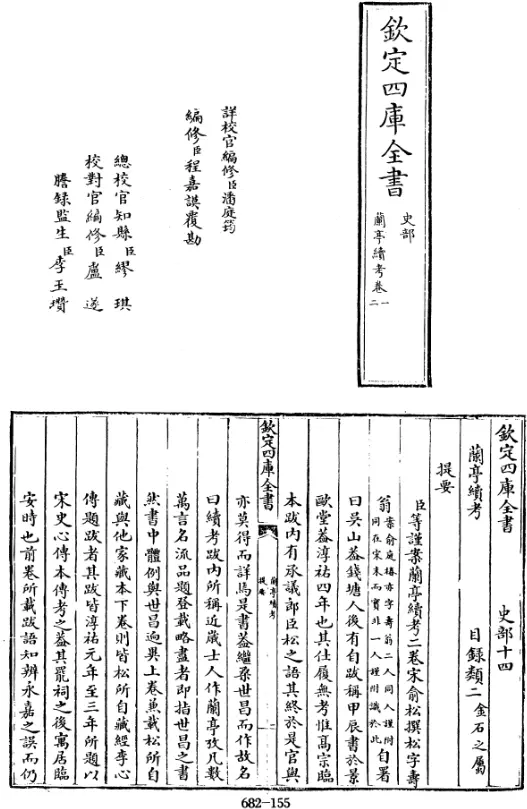 欽定四庫全書
史部
蘭亭續考卷一
二
詳校官編修臣潘庭筠
編修臣程嘉謨覆勘
總校官知縣臣繆琪
校對官編修臣盧遂
謄録監生臣李玉瓚
欽定四庫全書
史部十四
蘭亭續考
目録類二金石之屬
提要
臣等謹案蘭亭續考二卷宋俞松撰松字壽
翁案俞庭椿亦字壽翁二人同入謹附
同在宋末而實非一人謹附識於此自署
曰吳山蓋錢塘人後有自跋稱甲辰書於景
歐堂蓋淳祐四年也其仕履無考惟髙宗臨
本跋内有承議郎臣松之語其終於是官與
欽定四庫全書
蘭亭續考
提要
一
亦莫得而詳焉是書蓋繼桒世昌而作故名
曰續考跋内所稱近歲士人作蘭亭攷凡數
萬言名流品題登載略盡者即指世昌之書
然書中體例與世昌逈異上卷兼載松所自
藏與他家藏本下卷則皆松所自藏經李心
傳題跋者其跋皆淳祐元年至三年所題以
宋史心傳本傳考之蓋其罷祠之後寓居臨
安時也前卷所載跋語知辨永嘉之誤而仍
682-155